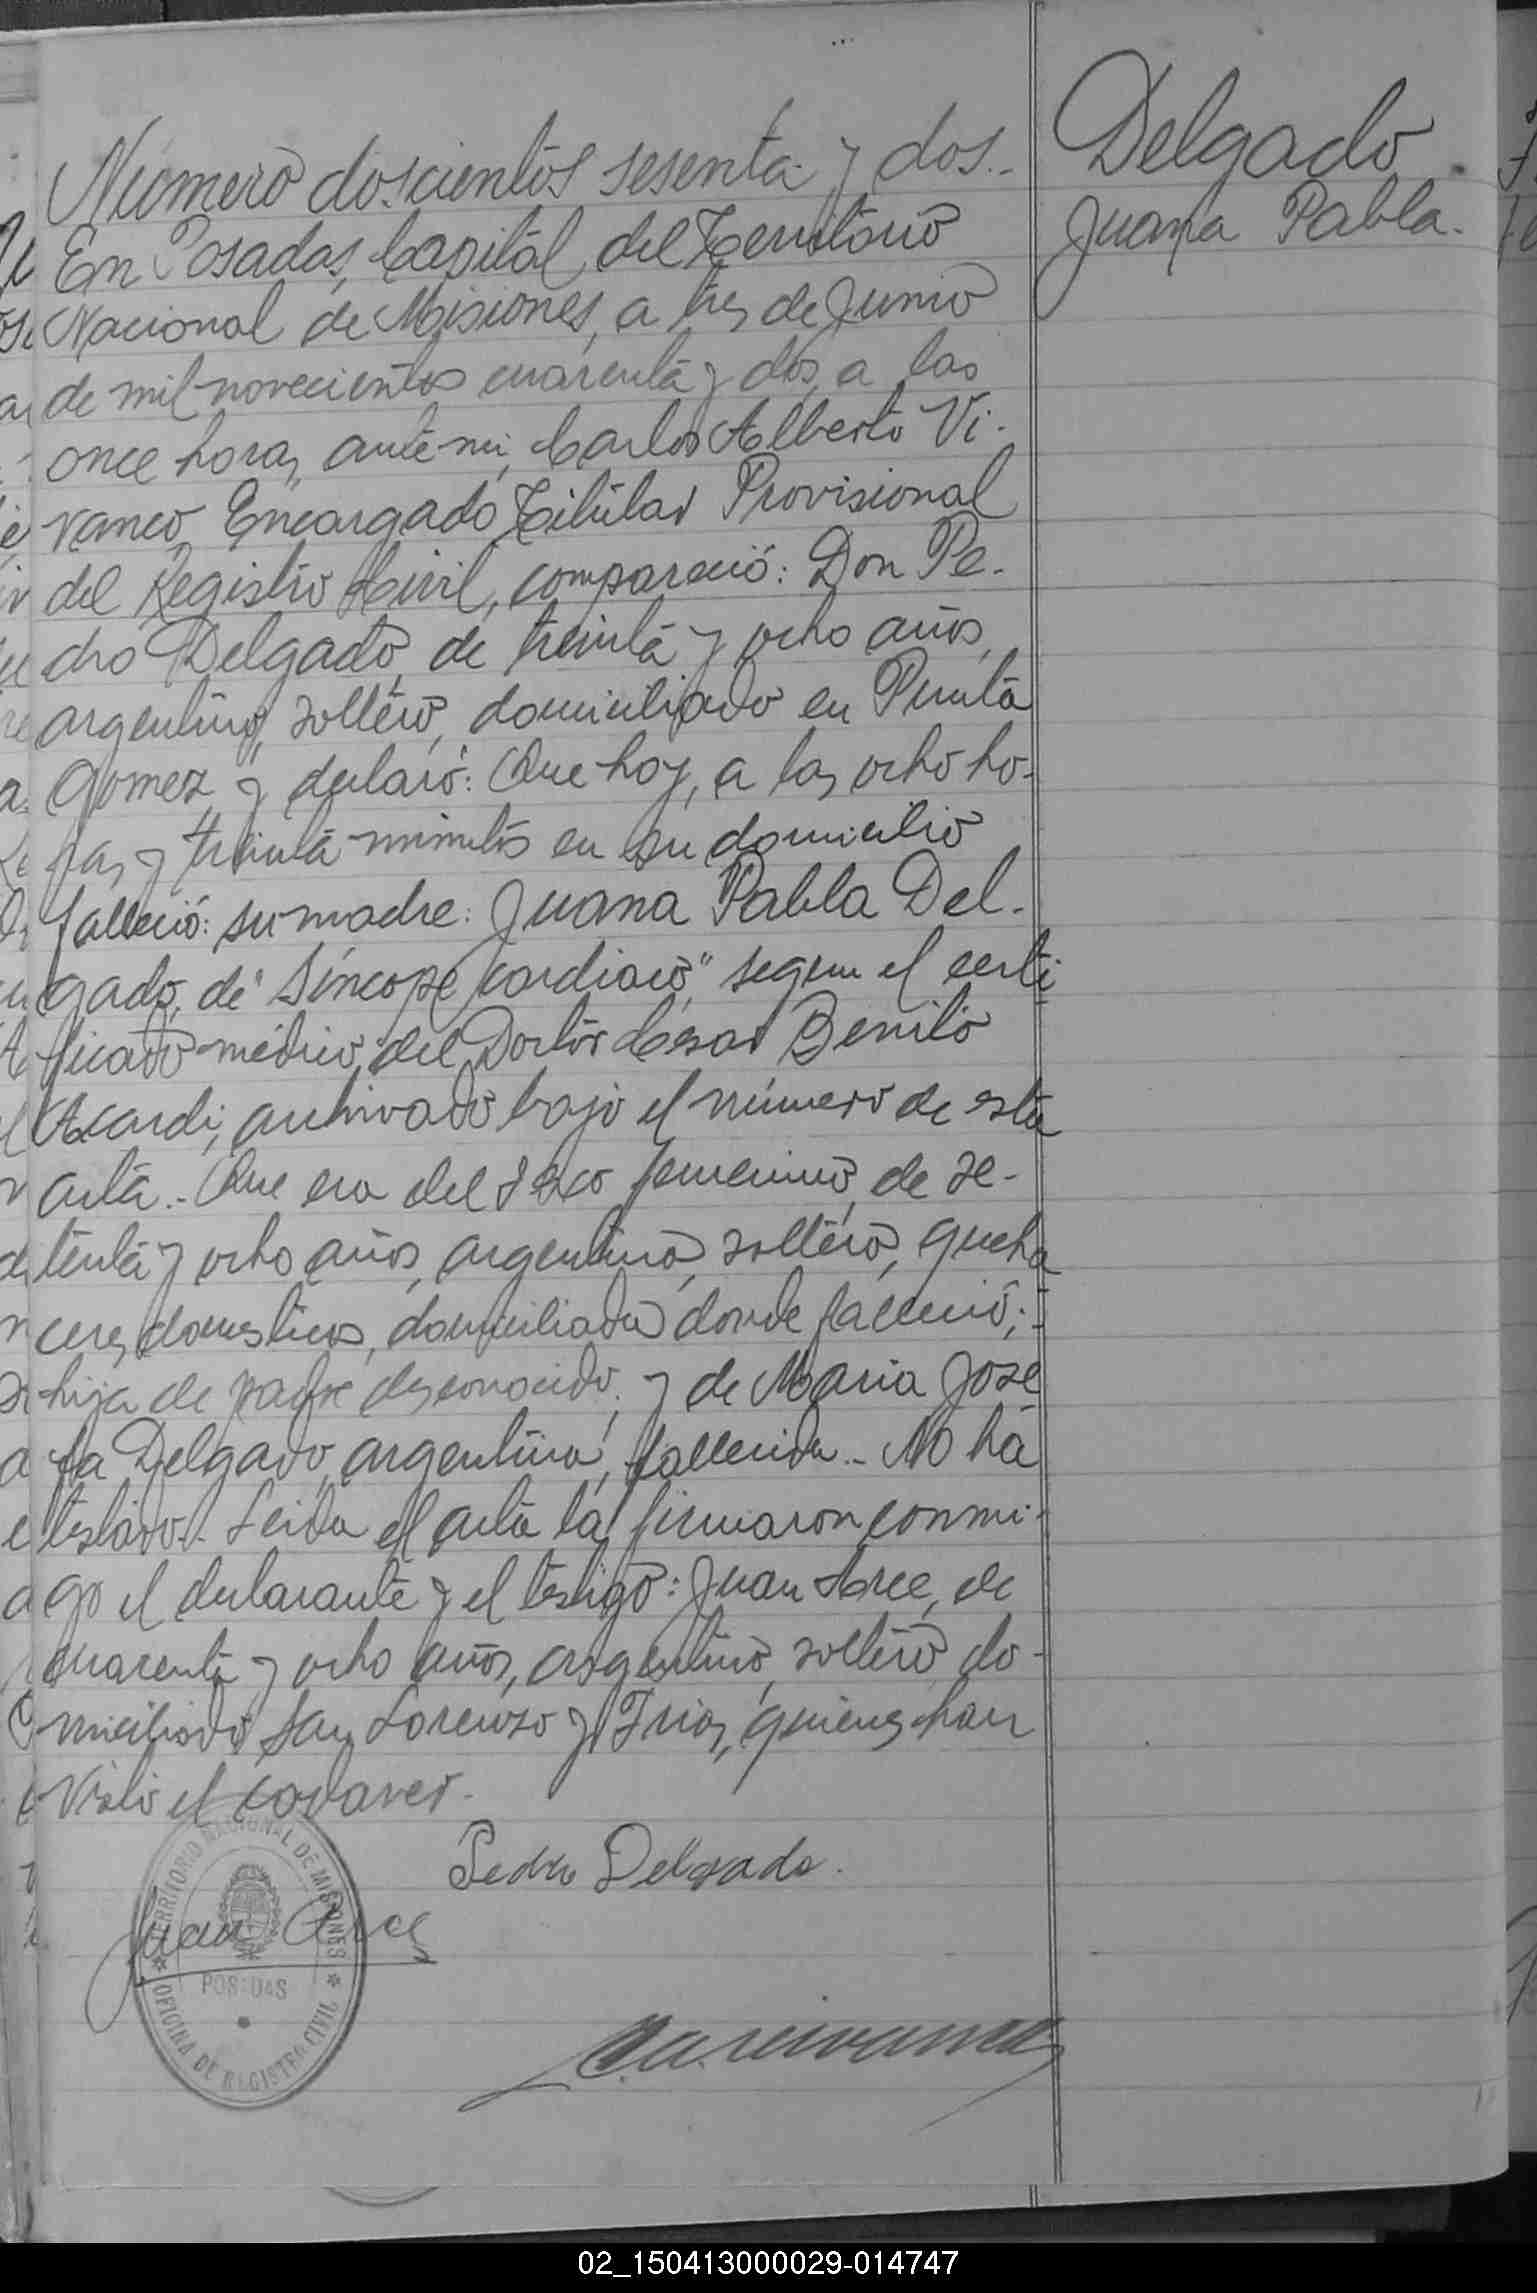 Delgado
Juana Pabla.-
Número doscientos sesenta y dos.-
En Posadas, Capital del Territorio
Nacional de Misiones, a tres de Junio
de mil novecientos cuarenta y dos, a las
once horas, ante mi, Carlos Alberto Vi-
vanco, Encargado Titular Provisional
del Registro Civil, compareció: Don Pe-
dro Delgado, de treinta y ocho años,
argentino, soltero, domiciliado en Punta
Gomez, y declaró: Que hoy, a las ocho ho-
ras y treinta minutos en su domicilio
falleció: su madre: Juana Pabla Del-
gado, de "Síncope cardiaco", segun el certi-
ficado médico, del Doctor Cesar Benito
Acardi, archivado bajo el número de esta
acta.- Que era del sexo femenino, de se-
tenta y ocho años, argentina, soltera, queha
ceres domesticos, domiciliada donde falleció;-
hija de padre desconocido; y de Maria Jose
fa Delgado, argentina, fallecida.- No ha
testado.- Leida el acta la firmaron conmi-
go el declarante y el testigo: Juan Arce, de
cuarenta y ocho años, argentino, soltero, do-
miciliado San Lorenzo y Frias, quienes han
visto el cadaver.-
Pedro Delgado.
Juan Arce
TERRITORIO NACIONAL DE MISIONES
POSADAS
OFICINA DE REGISTRO CIVIL
02_150413000029-014747